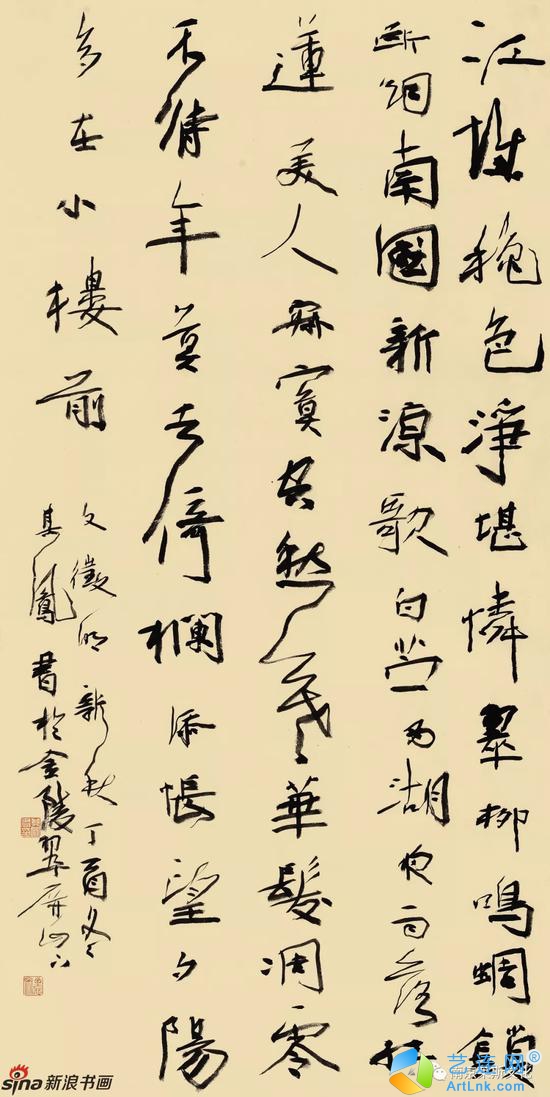 江城穐色淨堪憐翠柳鳴蜩鎖
断烟南國新涼歌白苎西湖夜雨落紅
蓮美人寂寞空愁暮華髮凋零
不待年莫去倚欄添悵望夕陽
多在小樓前
文徵明新秋丁酉冬
其鳳書於金陵翠屏山下
sina新浪书画
艺连网
ArtLnk.com